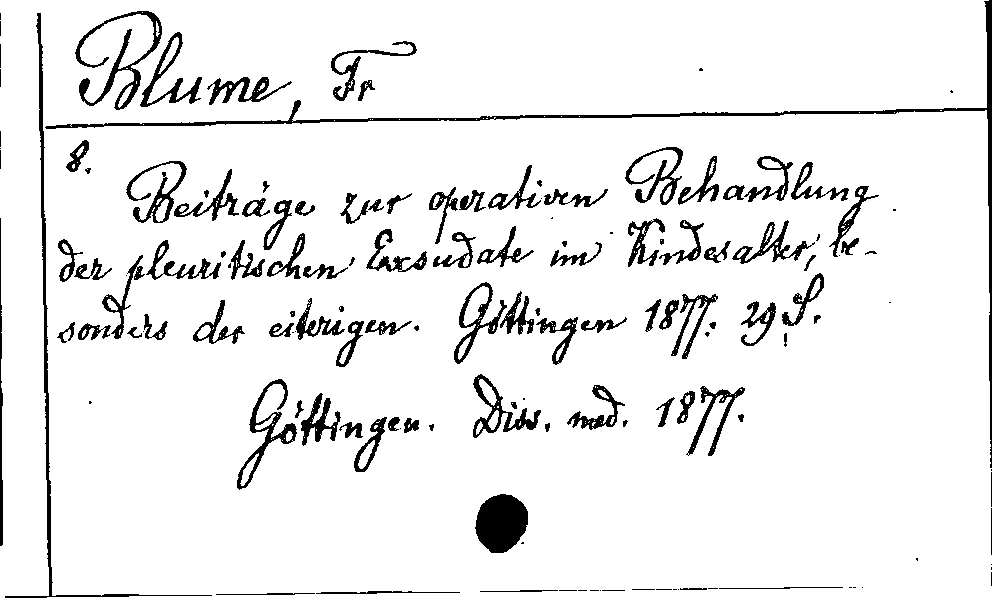 Blume, Fr
8.
Beiträge zur operativen Behandlung
der pleuritischen Exsudate im Kindesalter, be-
sonders der eiterigen. Göttingen 1877. 29 S.
Göttingen. Diss. med. 1877.